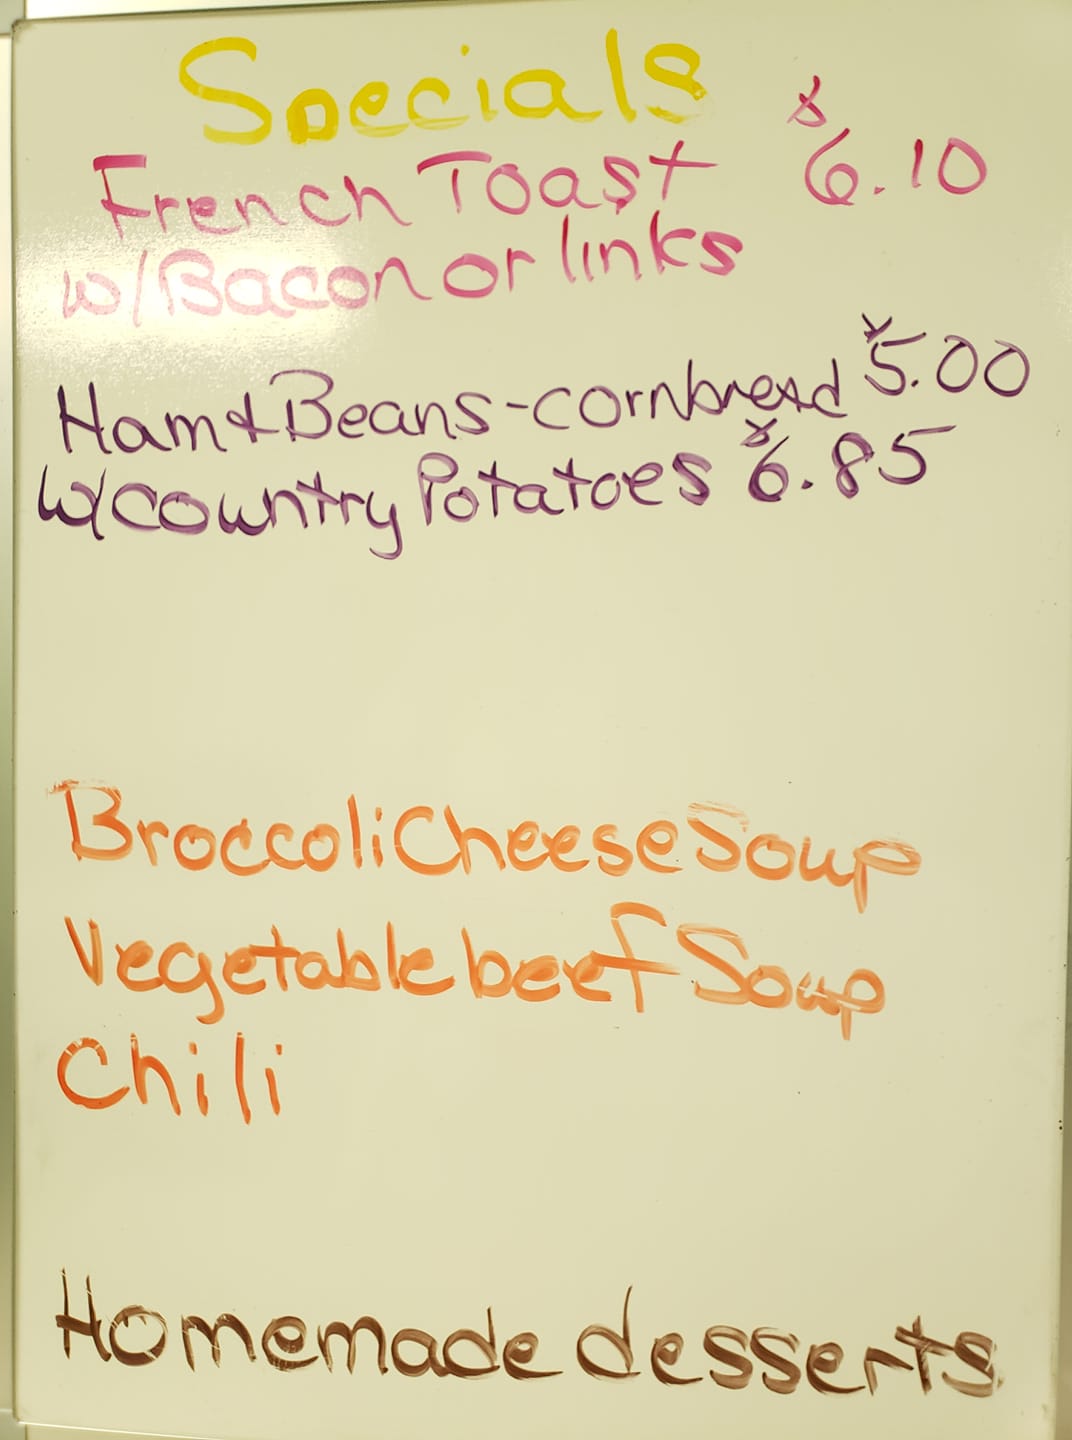 Specials
French Toast $6.10
w/Bacon or links
Ham & Beans - cornbread $5.00
w/country Potatoes $6.85
Broccoli Cheese Soup
Vegetable beef Soup
Chili
Homemade desserts